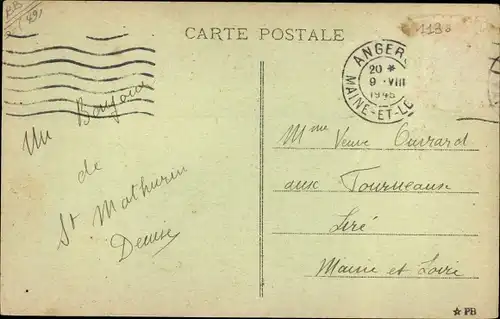 CARTE POSTALE
ANGER
20 *
9 VIII
1945
MAINE-ET-LO
Un Bonjour
de
St Mathurin
Denise
Mme Veuve Ouvrard
aux Fourneaux
Liré
Maine et Loire
☆ PB